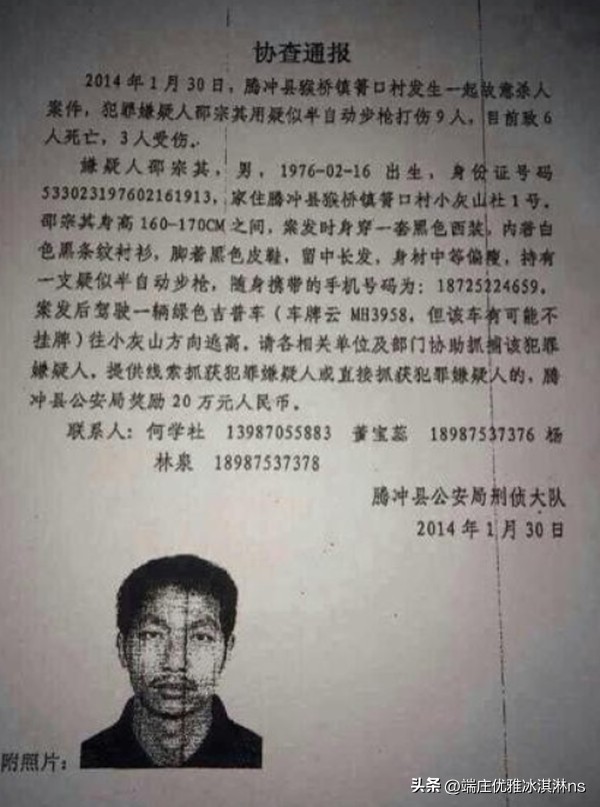 协查通报
2014年1月30日，腾冲县猴桥镇箐口村发生一起故意杀人
案件，犯罪嫌疑人邵宗其用疑似半自动步枪打伤9人，目前致6
人死亡，3人受伤。
嫌疑人邵宗其，男，1976-02-16 出生，身份证号码
533023197602161913，家住腾冲县猴桥镇箐口村小灰山社1号。
邵宗其身高160-170CM之间，案发时身穿一套黑色西装，内着白
色黑条纹衬衫，脚着黑色皮鞋，留中长发，身材中等偏瘦，持有
一支疑似半自动步枪，随身携带的手机号码为：18725224659，
案发后驾驶一辆绿色吉普车（车牌云 MH3958，但该车有可能不
挂牌）往小灰山方向逃离。请各相关单位及部门协助抓捕该犯罪
嫌疑人，提供线索抓获犯罪嫌疑人或直接抓获犯罪嫌疑人的，腾
冲县公安局奖励20万元人民币。
联系人：何学社 13987055883 董宝蕊 18987537376 杨
林泉 18987537378
腾冲县公安局刑侦大队
2014年1月30日
附照片：
头条 @端庄优雅冰淇淋ns